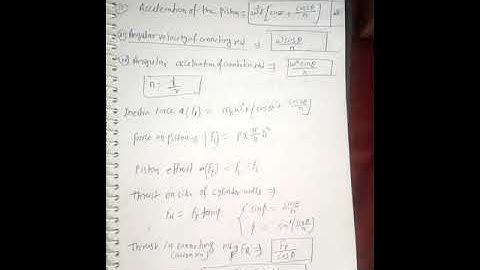 (i) Acceleration of the piston = ω²r[cosθ + cos2θ/n]
(ii) Angular velocity of connecting rod ⇒ ωcosθ/n
(iii) Angular acceleration of connecting rod ⇒ ω²sinθ/n
n = l/r
Inertia force (Fi) = ω²r(cosθ + cos2θ/n)
force on piston ⇒ (FL) = P × π/4 D²
Piston effort (Fp) = FL - Fi
Thrust on side of cylinder walls ⇒
FN = Fp tanφ { sinφ = sinθ/n
φ = sin⁻¹(sinθ/n)
Thrust in connecting rod FQ ⇒ Fp/cosφ